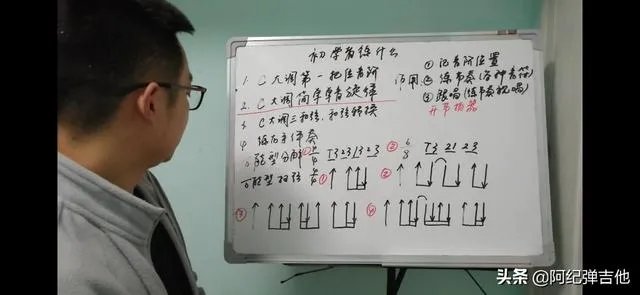 初学者练什么
1. C大调第一把位音阶
2. C大调简单单音旋律
3 C大调三和弦、和弦转换
4 练右手伴奏
作用
① 记音阶位置
② 练节奏(各种音符)
③ 跟唱(练节奏视唱)
开节拍器
分解 ① 4/4 T323 1323
② 6/8 T3 21 23
型扫弦 4/4 ①
②
③
④
头条 @阿纪弹吉他